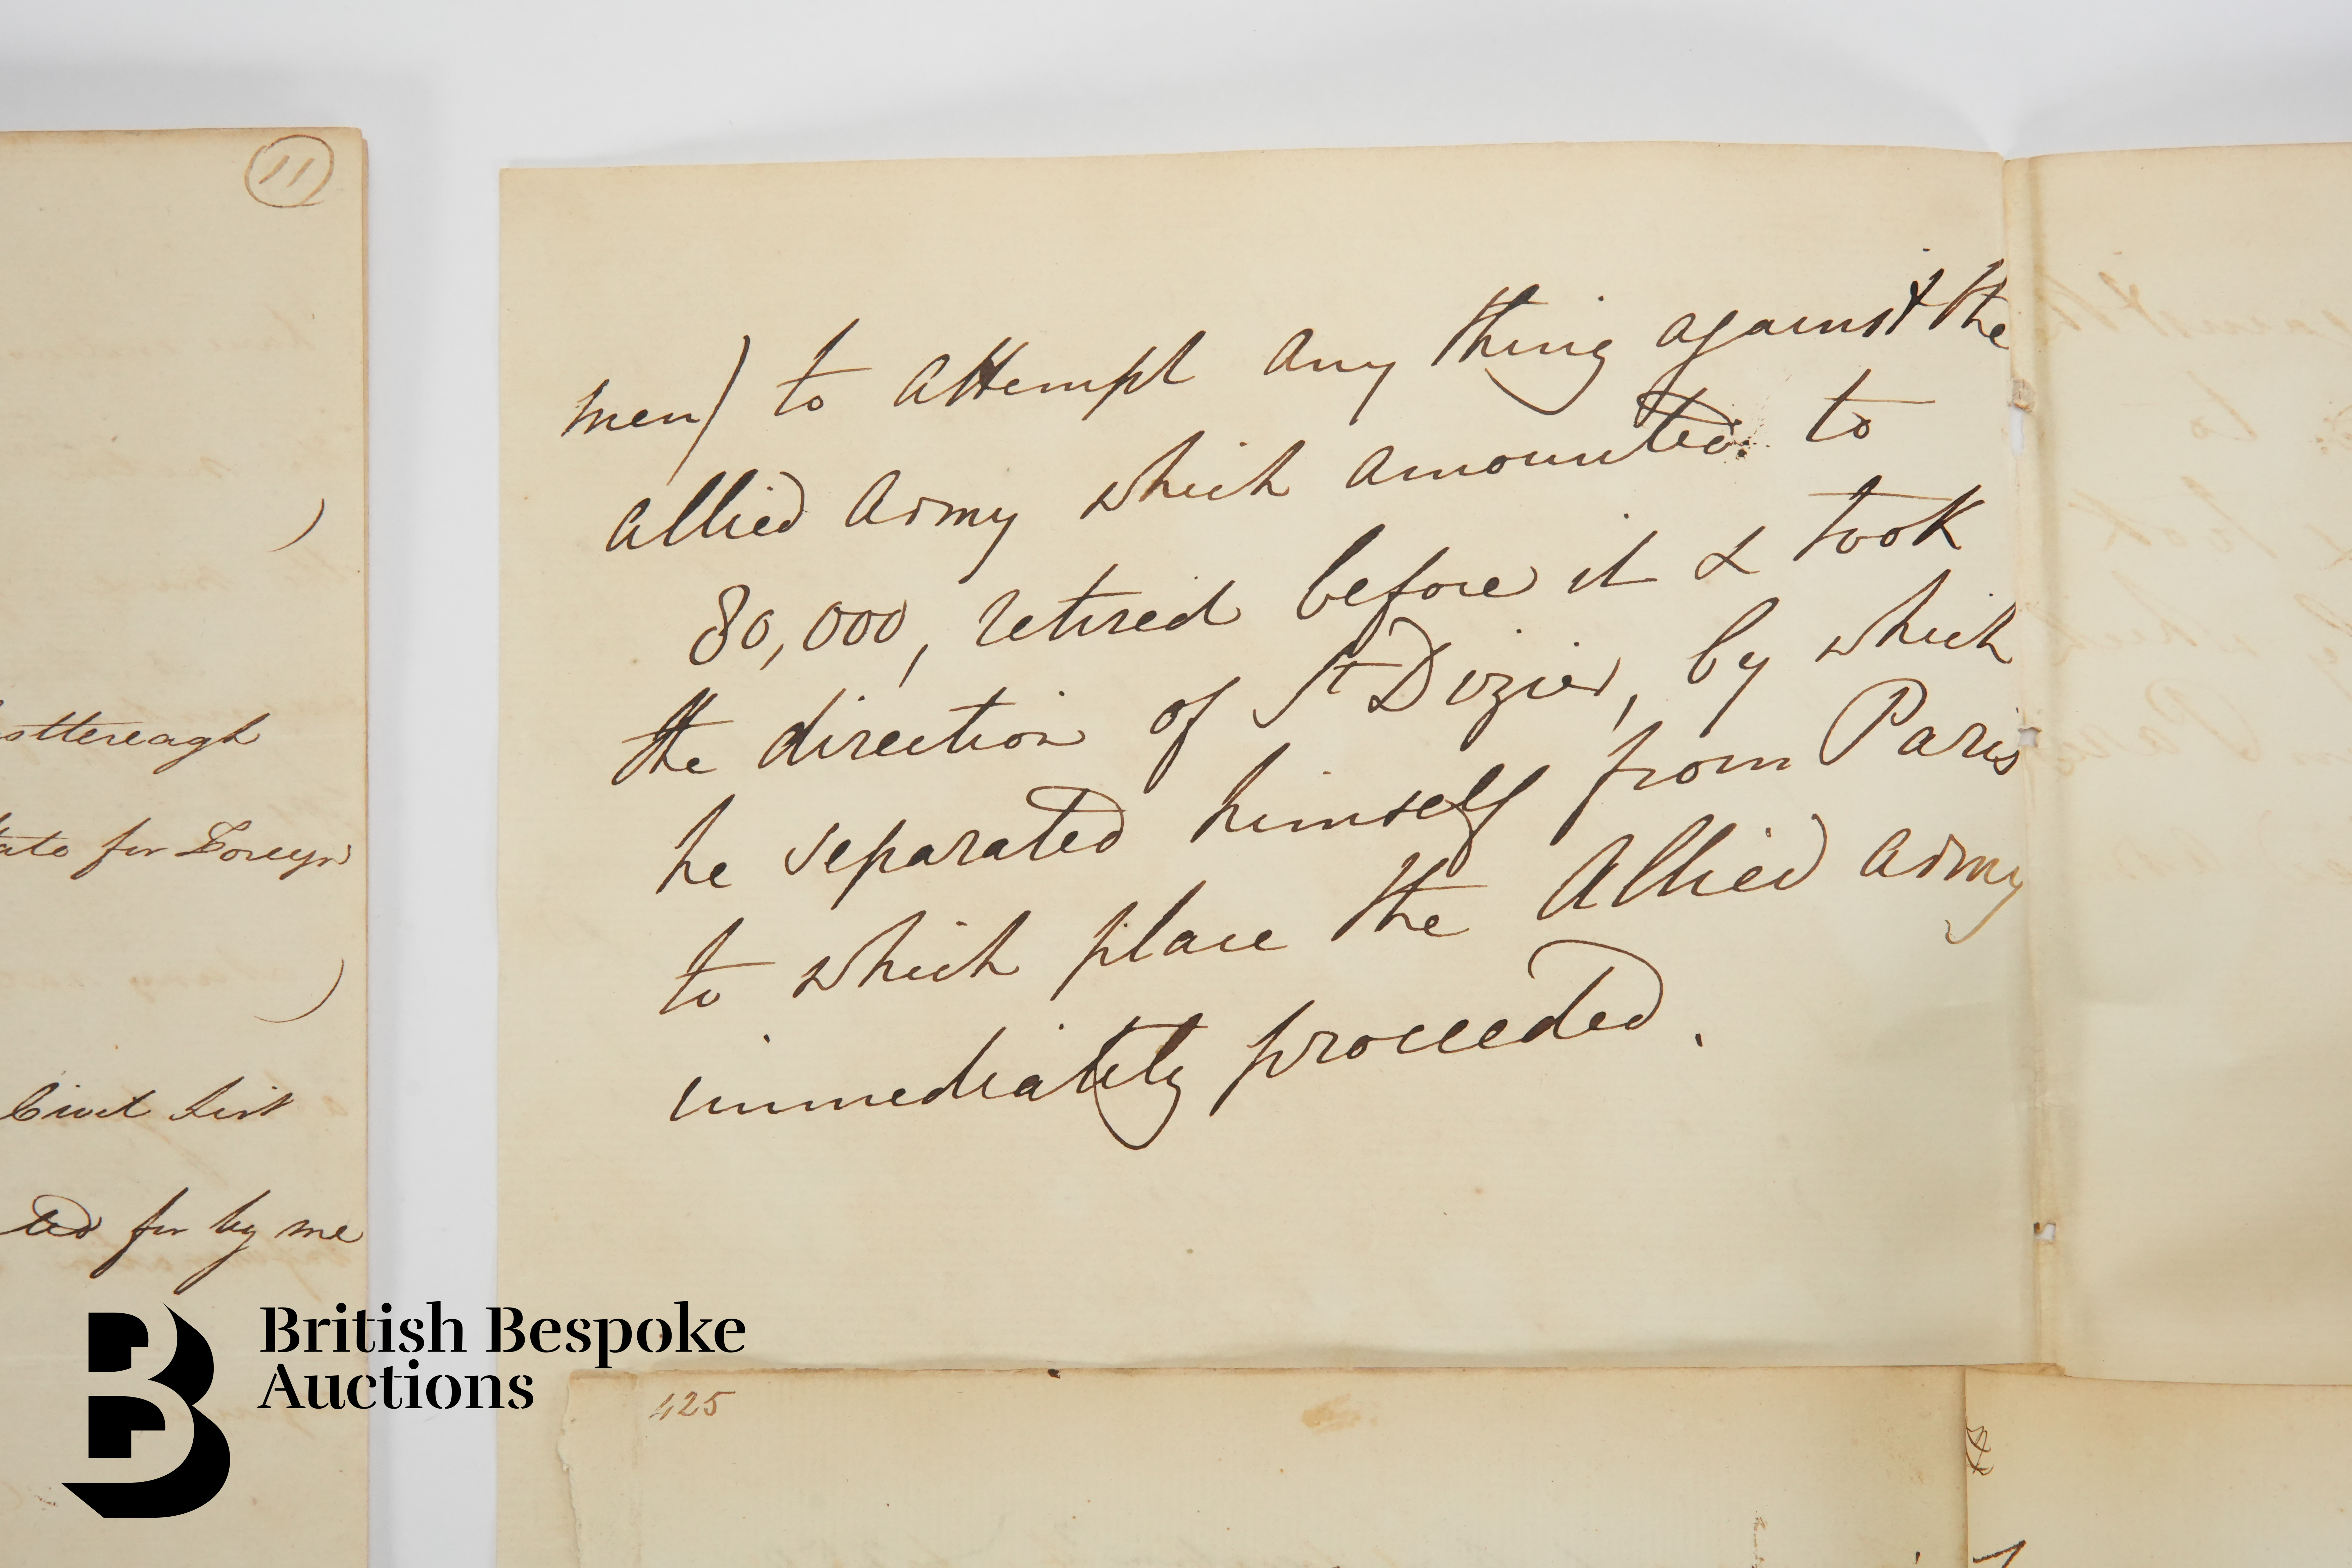 11
)
sttereagh
ate for Foreign
)
Civil List
ted for by me
men) to attempt any thing against the
allied Army which amounted to
80,000, retired before it & took
the direction of St Dizier, by which
he separated himself from Paris
to which place the Allied Army
immediately proceeded.
425
British Bespoke
Auctions